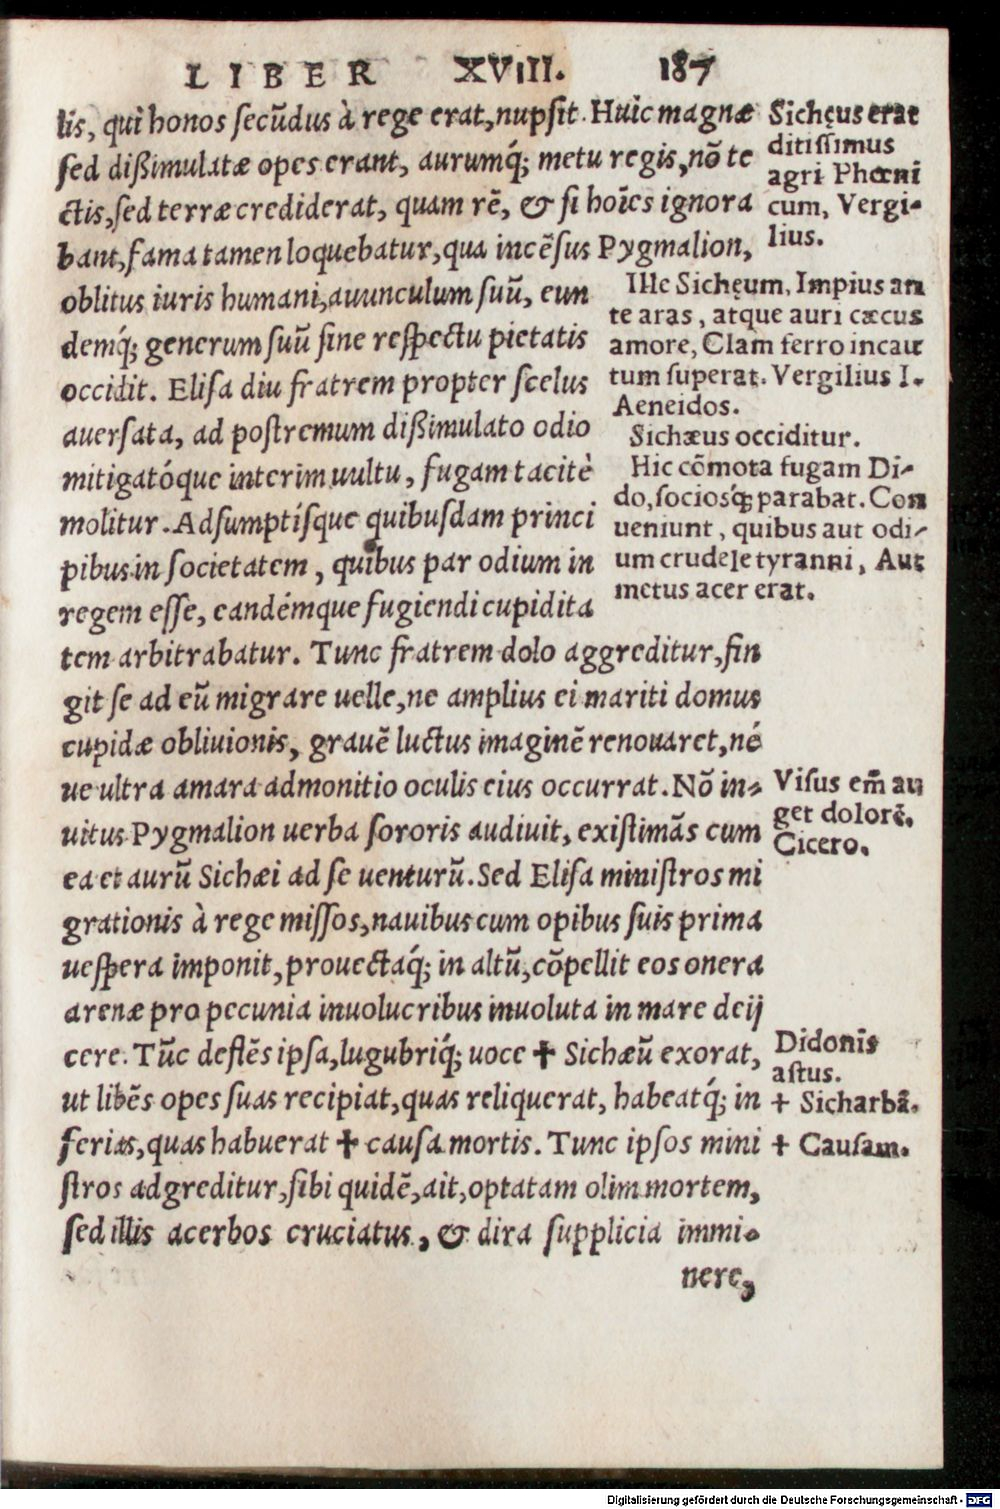 LIBER XVIII. 187
lis, qui honos secũdus à rege erat, nupsit. Huic magnæ
sed dißimulatæ opes erant, aurumq́; metu regis, nõ te
ctis, sed terræ crediderat, quam rẽ, & si hoĩes ignora
bant, fama tamen loquebatur, qua incẽsus Pygmalion,
oblitus iuris humani, auunculum suũ, eun
demq́; generum suũ sine respectu pietatis
occidit. Elisa diu fratrem propter scelus
auersata, ad postremum dißimulato odio
mitigatóque interim uultu, fugam tacitè
molitur. Adsumptísque quibusdam princi
pibus in societatem, quibus par odium in
regem esse, eandémque fugiendi cupidita
tem arbitrabatur. Tunc fratrem dolo aggreditur, fin
git se ad eũ migrare uelle, ne amplius ei mariti domus
cupidæ obliuionis, grauẽ luctus imaginẽ renouaret, né
ue ultra amara admonitio oculis eius occurrat. Nõ in-
uitus Pygmalion uerba sororis audiuit, existimãs cum
ea et aurũ Sichæi ad se uenturũ. Sed Elisa ministros mi
grationis à rege missos, nauibus cum opibus suis prima
uespera imponit, prouectaq́; in altũ, cõpellit eos onera
arenæ pro pecunia inuolucribus inuoluta in mare deij
cere. Tũc deflẽs ipsa, lugubriq́; uoce ✝ Sichæũ exorat,
ut libẽs opes suas recipiat, quas reliquerat, habeatq́; in
ferias, quas habuerat ✝ causa mortis. Tunc ipsos mini
stros adgreditur, sibi quidẽ, ait, optatam olim mortem,
sed illis acerbos cruciatus, & dira supplicia immi-
nere,
Sichęus erat
ditissimus
agri Phœni
cum, Vergi-
lius.
Ille Sichęum, Impius an
te aras, atque auri cæcus
amore, Clam ferro incau
tum superat. Vergilius I.
Aeneidos.
Sichæus occiditur.
Hic cõmota fugam Di-
do, sociosq́; parabat. Con
ueniunt, quibus aut odi-
um crudele tyranni, Aut
metus acer erat.
Visus em̃ au
get dolorẽ.
Cicero.
Didonis
astus.
+ Sicharbã.
+ Causam.
Digitalisierung gefördert durch die Deutsche Forschungsgemeinschaft - DFG